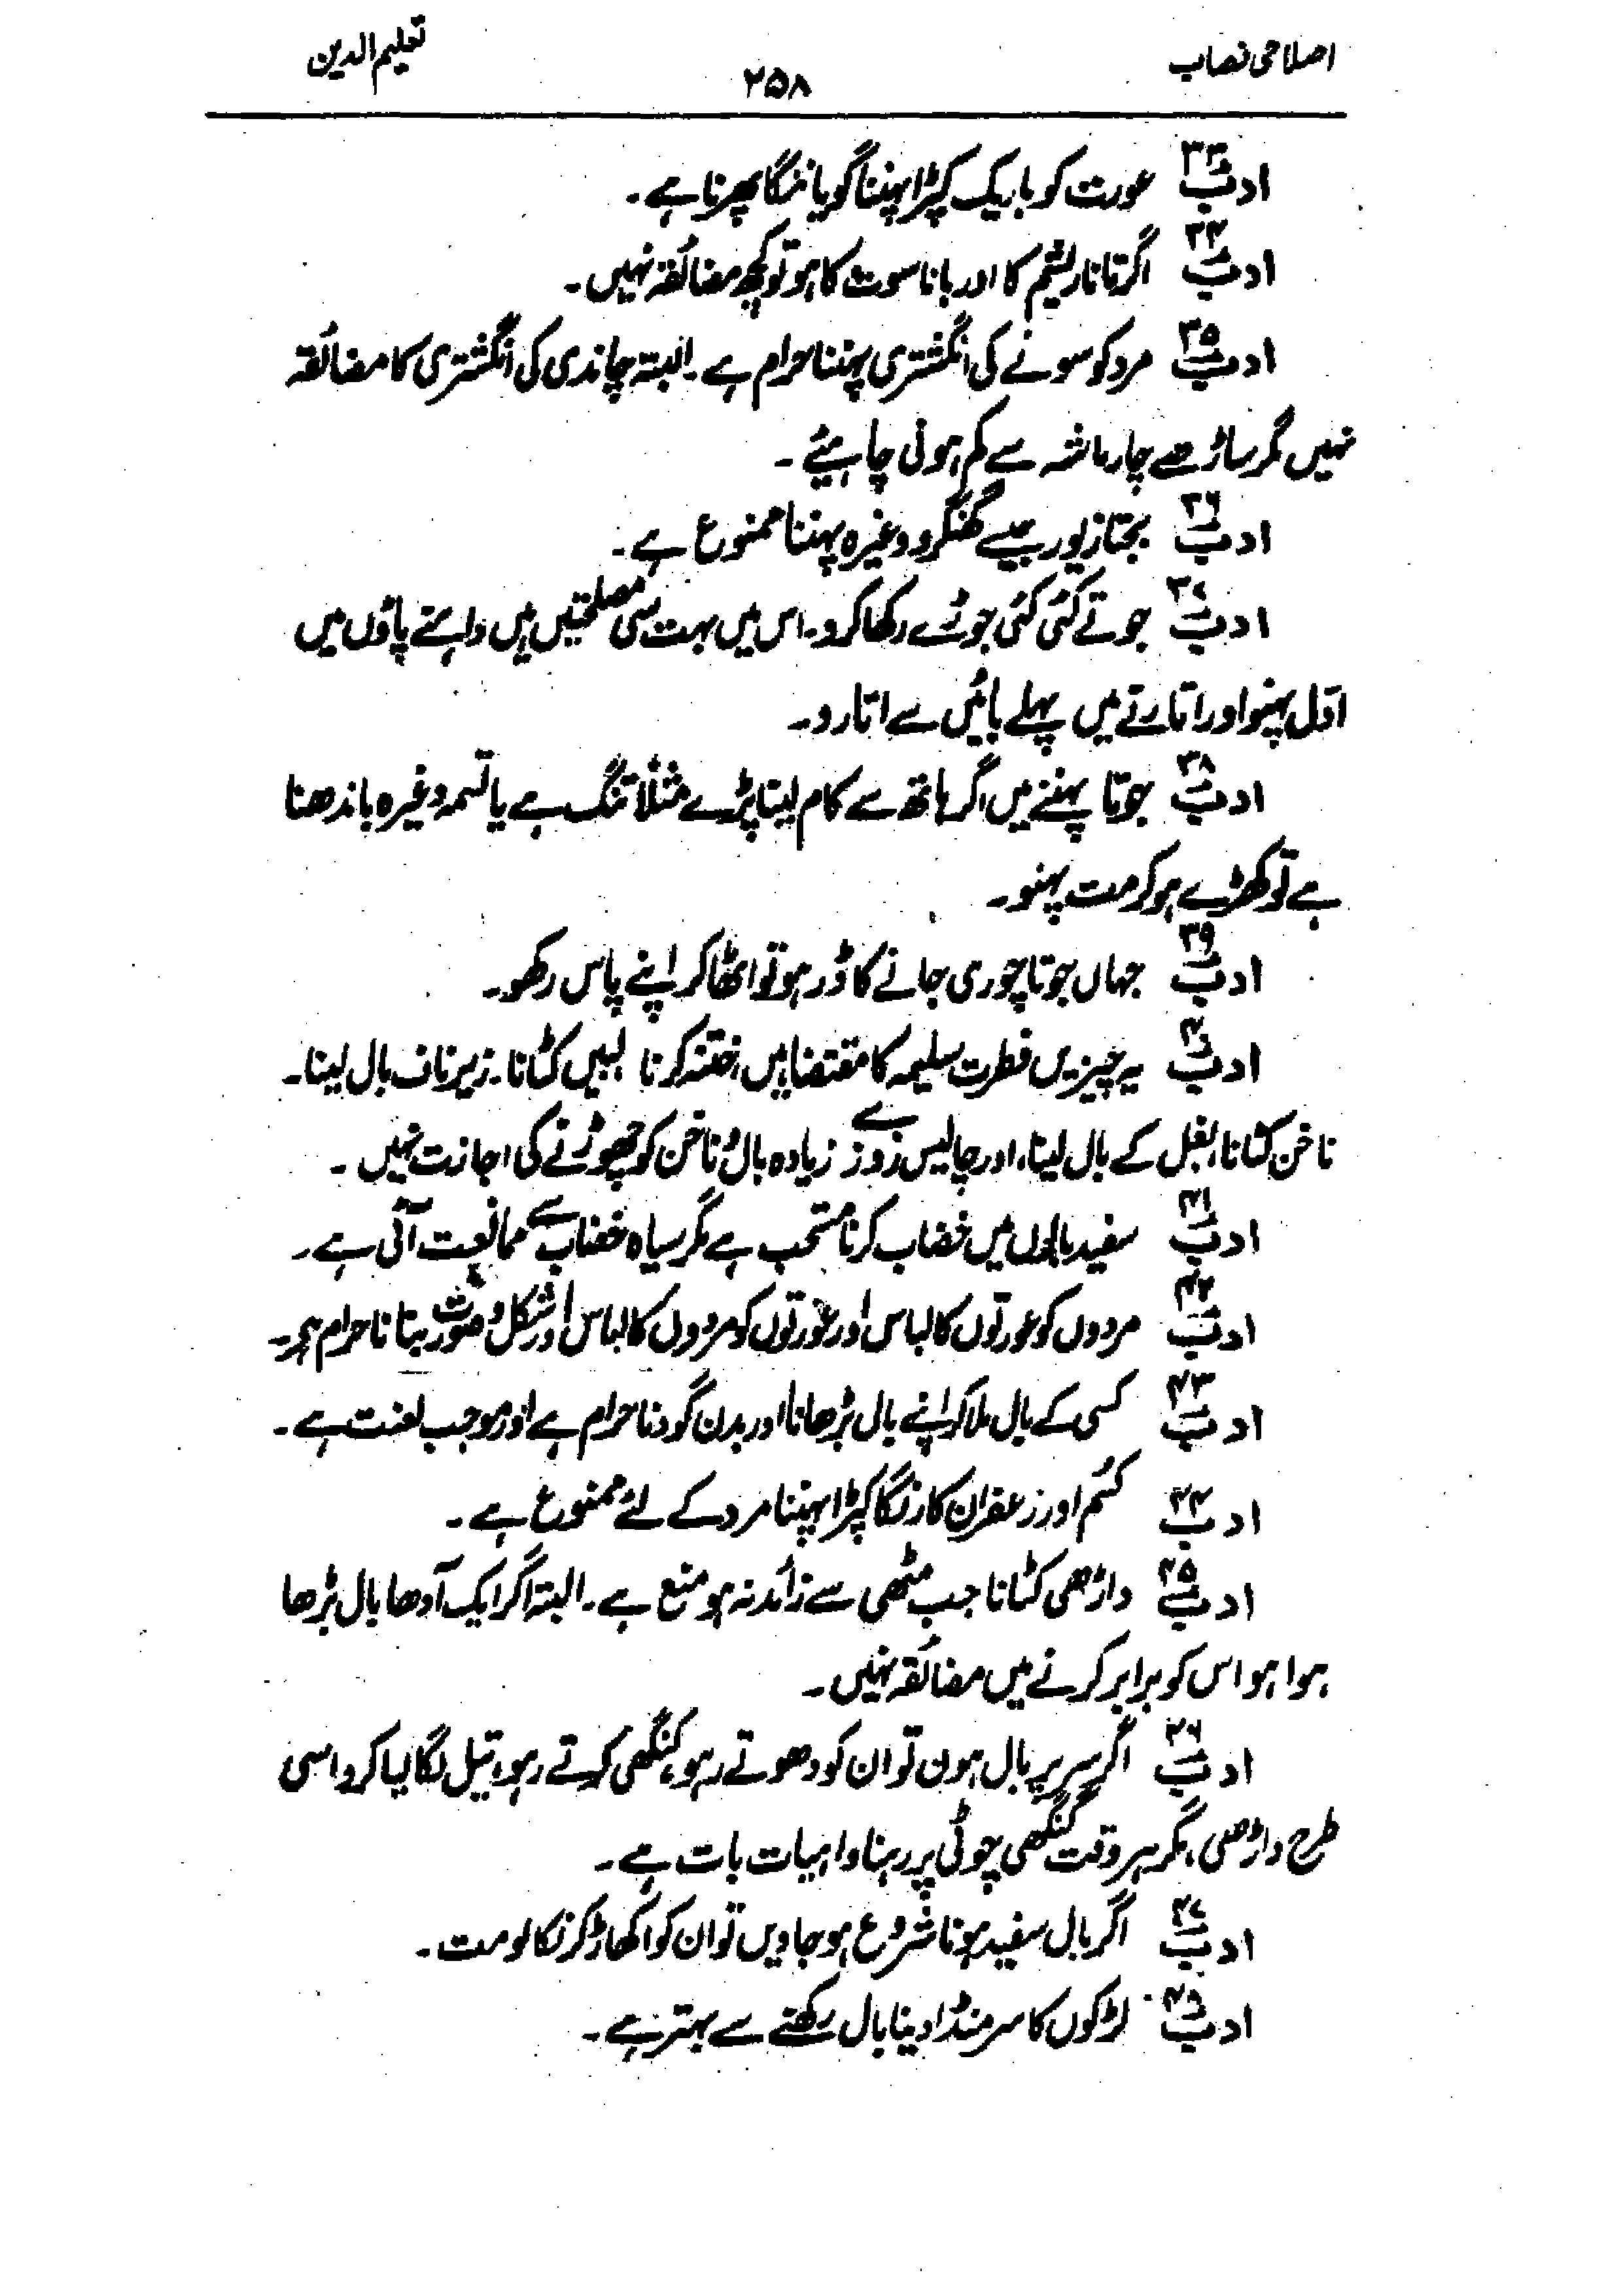 اصلاحی نصاب ۲۵۸ تعلیم الدین
ادب ۳۳ عورت کو باریک کپڑا پہننا گویا ننگا پھرنا ہے۔
ادب ۳۴ اگر تانا ریشم کا اور بانا سوت کا ہو تو کچھ مضائقہ نہیں۔
ادب ۳۵ مرد کو سونے کی انگشتری پہننا حرام ہے۔ البتہ چاندی کی انگشتری کا مضائقہ
نہیں مگر ساڑھے چار ماشہ سے کم ہونی چاہیئے۔
ادب ۳۶ بجتا زیور جیسے گھنگرو وغیرہ پہننا ممنوع ہے۔
ادب ۳۷ جوتے کئی کئی جوڑے رکھا کرو۔ اس میں بہت سی مصلحتیں ہیں داہنے پاؤں میں
اوّل پہنو اور اتارتے میں پہلے بائیں سے اتارو۔
ادب ۳۸ جوتا پہننے میں اگر ہاتھ سے کام لینا پڑے مثلاً تنگ ہے یا تسمہ وغیرہ باندھنا
ہے تو کھڑے ہو کر مت پہنو۔
ادب ۳۹ جہاں جوتا چوری جانے کا ڈر ہو تو اٹھا کر اپنے پاس رکھو۔
ادب ۴۰ یہ چیزیں فطرت سلیمہ کا مقتضا ہیں، ختنہ کرنا لبیں کٹانا۔ زیر ناف بال لینا۔
ناخن کٹانا، بغل کے بال لینا، اور چالیس روز سے زیادہ بال و ناخن کو چھوڑنے کی اجازت نہیں۔
ادب ۴۱ سفید بالوں میں خضاب کرنا مستحب ہے مگر سیاہ خضاب سے ممانعت آئی ہے۔
ادب ۴۲ مردوں کو عورتوں کا لباس اور عورتوں کو مردوں کا لباس اور شکل و صورت بنانا حرام ہے۔
ادب ۴۳ کسی کے بال ملا کر اپنے بال بڑھانا اور بدن گودنا حرام ہے اور موجب لعنت ہے۔
ادب ۴۴ کسُم اور زعفران کا رنگا کپڑا پہننا مرد کے لئے ممنوع ہے۔
ادب ۴۵ داڑھی کٹانا جب مٹھی سے زائد نہ ہو منع ہے۔ البتہ اگر ایک آدھا بال بڑھا
ہوا ہو اس کو برابر کرنے میں مضائقہ نہیں۔
ادب ۴۶ اگر سر پر بال ہوں تو ان کو دھوتے رہو، کنگھی کرتے رہو، تیل لگا لیا کرو اسی
طرح داڑھی، مگر ہر وقت کنگھی چوٹی پر رہنا واہیات بات ہے۔
ادب ۴۷ اگر بال سفید ہونا شروع ہو جاویں تو ان کو اکھاڑ کر نکالو مت۔
ادب لڑکوں کا سر منڈا دینا بال رکھنے سے بہتر ہے۔